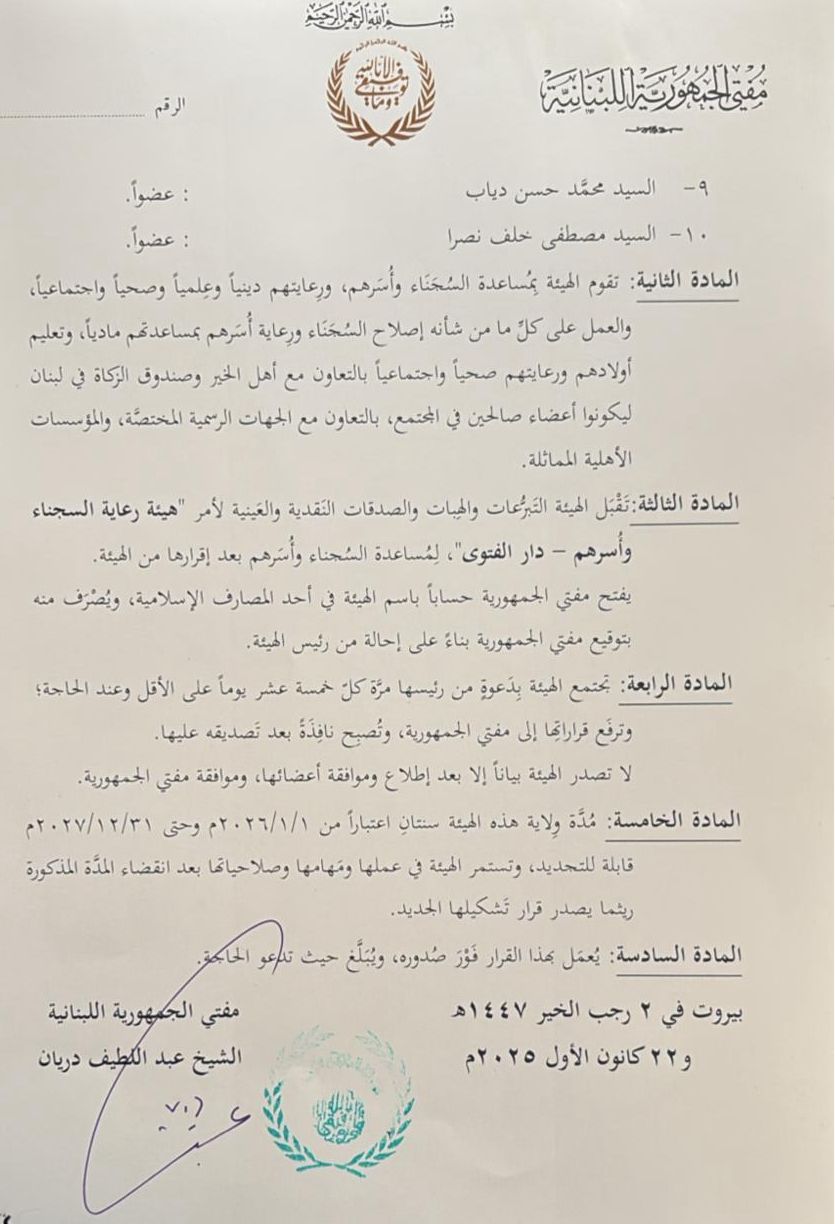 بِسْمِ اللهِ الرَّحْمٰنِ الرَّحِيمِ
مُفْتِي الجُمْهُورِيَّةِ اللُّبْنَانِيَّةِ
وما توفيقي إلا بالله
الرقم ........................
٩- السيد محمَّد حسن دياب : عضواً.
١٠- السيد مصطفى خلف نصرا : عضواً.
المادة الثانية: تقوم الهيئة بِمُساعدة السُجَنَاء وأُسَرهم، ورِعايتهم دينياً وعِلمياً وصحياً واجتماعياً،
والعمل على كلِّ ما من شأنه إصلاح السُجَنَاء ورِعاية أُسَرهم بمساعدتهم مادياً، وتعليم
أولادهم ورعايتهم صحياً واجتماعياً بالتعاون مع أهل الخير وصندوق الزكاة في لبنان
ليكونوا أعضاء صالحين في المجتمع، بالتعاون مع الجهات الرسمية المختصَّة، والمؤسسات
الأهلية المماثلة.
المادة الثالثة: تَقْبَل الهيئة التَبرُّعات والهِبات والصدقات النَقدية والعَينية لأمر "هيئة رعاية السجناء
وأُسرهم – دار الفتوى"، لِمُساعدة السُجناء وأُسَرهم بعد إقرارها من الهيئة.
يفتح مفتي الجمهورية حساباً باسم الهيئة في أحد المصارف الإسلامية، ويُصْرَف منه
بتوقيع مفتي الجمهورية بناءً على إحالة من رئيس الهيئة.
المادة الرابعة: تجتمع الهيئة بِدَعوةٍ من رئيسها مرَّة كلّ خمسة عشر يوماً على الأقل وعند الحاجة؛
وترفَع قراراتها إلى مفتي الجمهورية، وتُصبِح نافِذَةً بعد تَصديقه عليها.
لا تصدر الهيئة بياناً إلا بعد إطلاع وموافقة أعضائها، وموافقة مفتي الجمهورية.
المادة الخامسة: مُدَّة وِلاية هذه الهيئة سنتانِ اعتباراً من ٢٠٢٦/١/١م وحتى ٢٠٢٧/١٢/٣١م
قابلة للتجديد، وتستمر الهيئة في عملها ومَهامها وصلاحياتها بعد انقضاء المدَّة المذكورة
ريثما يصدر قرار تَشكيلها الجديد.
المادة السادسة: يُعمَل بهذا القرار فَوْرَ صُدوره، ويُبَلَّغ حيث تدعو الحاجة.
بيروت في ٢ رجب الخير ١٤٤٧هـ
و٢٢ كانون الأول ٢٠٢٥م
مفتي الجمهورية اللبنانية
الشيخ عبد اللطيف دريان